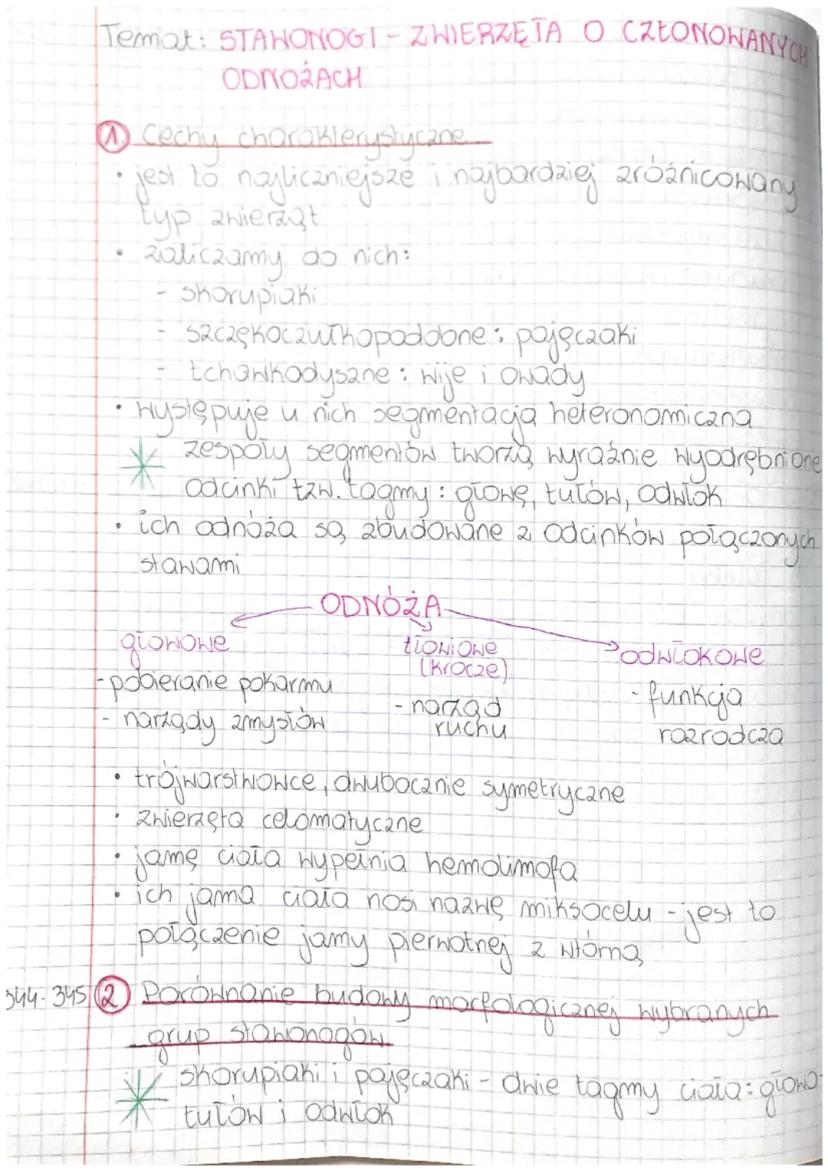 Temat: STAWONOGI - ZWIERZĘTA O CZŁONOWANYCH
ODNÓŻACH
1. Cechy charakterystyczne
• jest to najliczniejsze i najbardziej zróżnicowany
typ zwierząt
• zaliczamy do nich:
- skorupiaki
- szczękoczułkopodobne: pajęczaki
- tchawkodyszne: wije i owady
• występuje u nich segmentacja heteronomiczna
zespoły segmentów tworzą wyraźnie wyodrębnione
odcinki tzw. tagmy: głowę, tułów, odwłok
• ich odnóża są zbudowane z odcinków połączonych
stawami
ODNÓŻA
głowowe tłowiowe odwłokowe
(krocze)
- pobieranie pokarmu - narząd - funkcja
- narządy zmysłów ruchu rozrodcza
• trójwarstwowce, dwubocznie symetryczne
• zwierzęta celomatyczne
• jamę ciała wypełnia hemolimfa
• ich jama ciała nosi nazwę miksocelu - jest to
połączenie jamy pierwotnej z wtórną
344-345 2 Porównanie budowy morfologicznej wybranych
grup stawonogów
skorupiaki i pajęczaki - dwie tagmy ciała: głowo-
tułów i odwłok